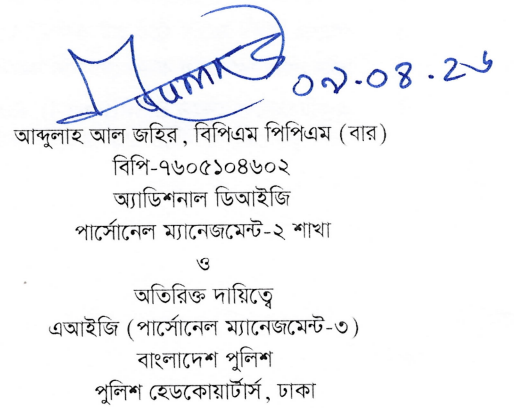 ০৯.০৪.২৬
আব্দুলাহ আল জহির, বিপিএম পিপিএম (বার)
বিপি-৭৬০৫১০৪৬০২
অ্যাডিশনাল ডিআইজি
পার্সোনেল ম্যানেজমেন্ট-২ শাখা
ও
অতিরিক্ত দায়িত্বে
এআইজি (পার্সোনেল ম্যানেজমেন্ট-৩)
বাংলাদেশ পুলিশ
পুলিশ হেডকোয়ার্টার্স, ঢাকা